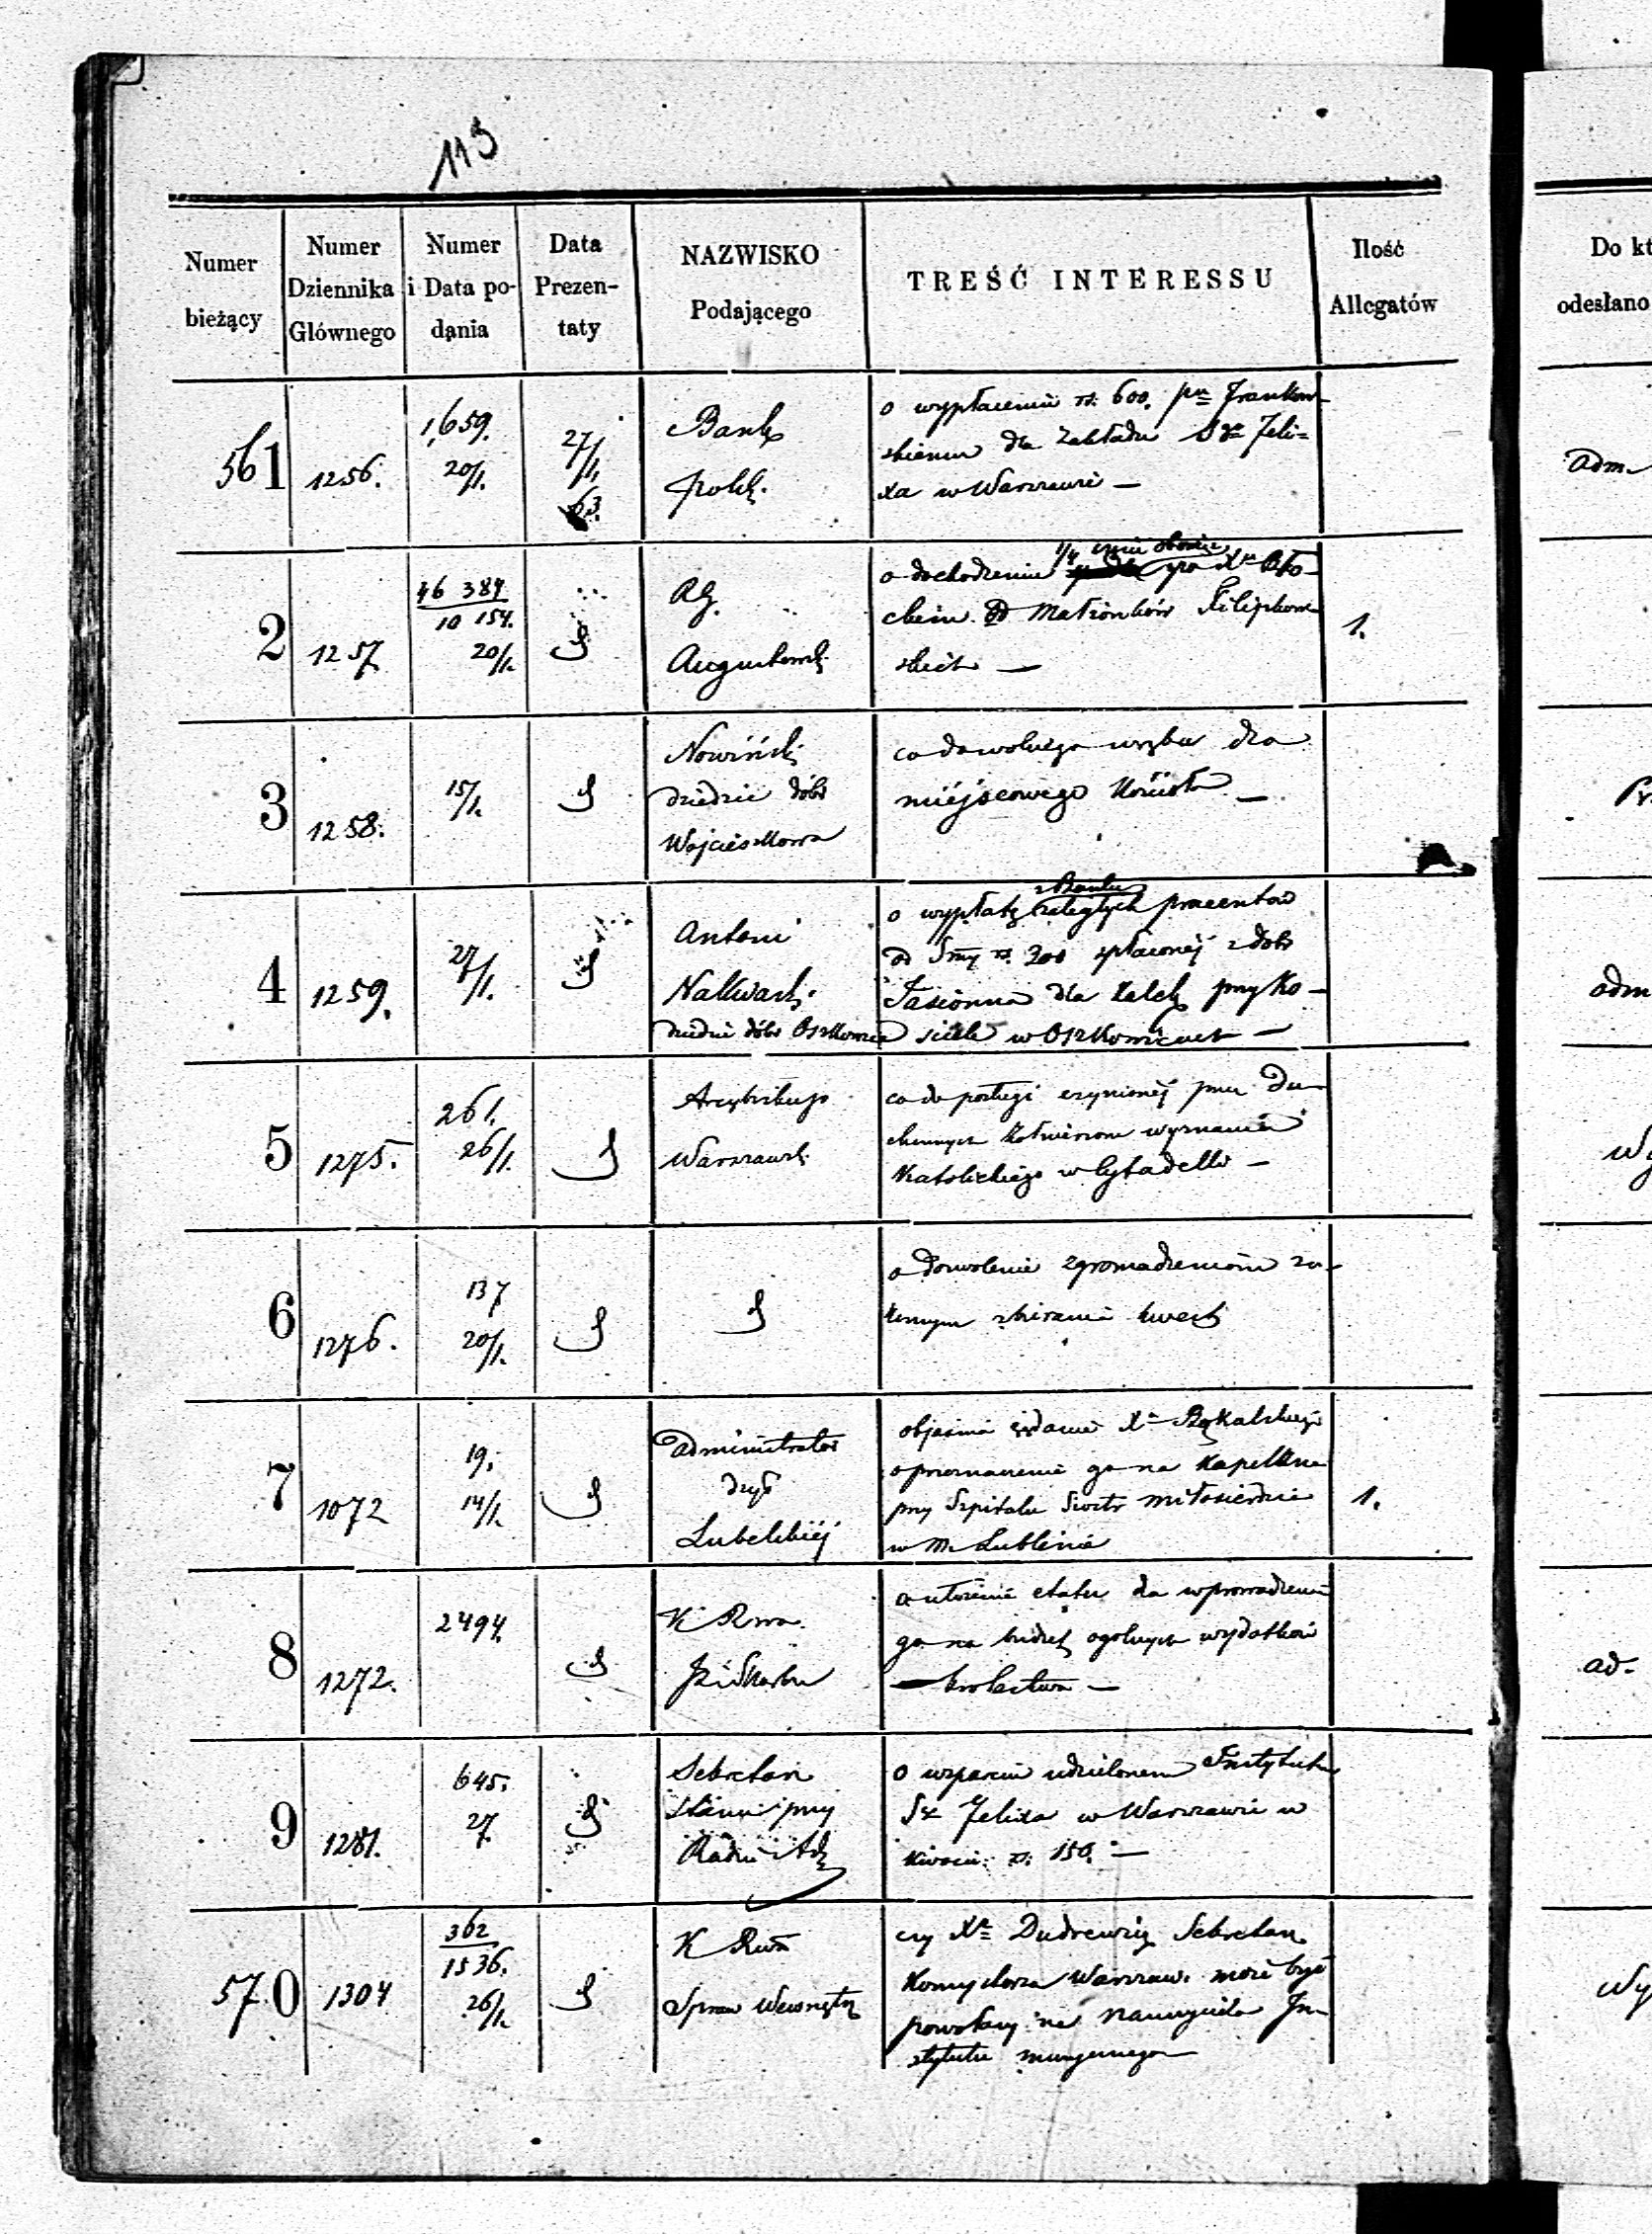 113
Numer bieżący
Numer Dziennika Głównego
Numer i Data podania
Data Prezentaty
NAZWISKO Podającego
TREŚĆ INTERESSU
Ilość Allegatów
Do kt
odesłano
561
1256.
1,659.
20/1.
27/1.
63.
Bank
Polsk.
o wypłaceniu rs. 600.
skiemu dla Zakładu Sgo Feli=
xa w Warszawie —
Adm.
2
1257
46 384
10 154.
20/1.
Augustowsk.
o dochodzeniu
Małżonków Filipkow
skich —
1.
3
1258.
15/1.
Nowińsk.
dziedzic dóbr
Wojcieszkowa
co do wolnego wrębu dla
miéjscowego Kościoła —
4
1259.
27/1.
Antoni
Nakwask.
dziedzic dóbr Oszkowice
z Banku
o wypłatę zaległych procentów
od Smy rs. 300 spłaconéj z dóbr
Jasionna dla kalek przy Ko-
ściele w Oszkowicach —
adm
5
1275.
261.
26/1.
Arcybiskup
Warszawsk.
co do posługi czynionéj przez Du-
chownych Żołnierzom wyznania
Katolickiego w Cytadelli —
Wy
6
1276.
137
20/1.
o dozwolenie zgromadzeniom za-
konnym zbierania kwest
7
1072
19.
14/1.
Administrator
Dyec
Lubelskiéj
objaśnia żądanie Xa Bąkalskiego
o przeznaczenie go na Kapellana
przy Szpitalu Siostr Miłosierdzia
w M. Lublinie
1.
8
1272.
2494.
K Rwa
P. i Skarbu
o ułożenie etatu dla wprowadzenia
go na budżet ogolnych wydatków
— Królestwa —
ad.
9
1281.
645.
27.
Sekretarz
Stanu przy
Radzie Ad.
o wsparciu udzielonem Instytut.
Sgo Felixa w Warszawie w
kwocie rs. 150. —
570
1304
362
1536.
26/1.
K Rwa
Spraw Wewnętrz
czy Xa Dudrewicz Sekretarz
Konsystorza Warszaw. może być
powołany na nauczyciela In-
stytutu muzycznego —
Wy